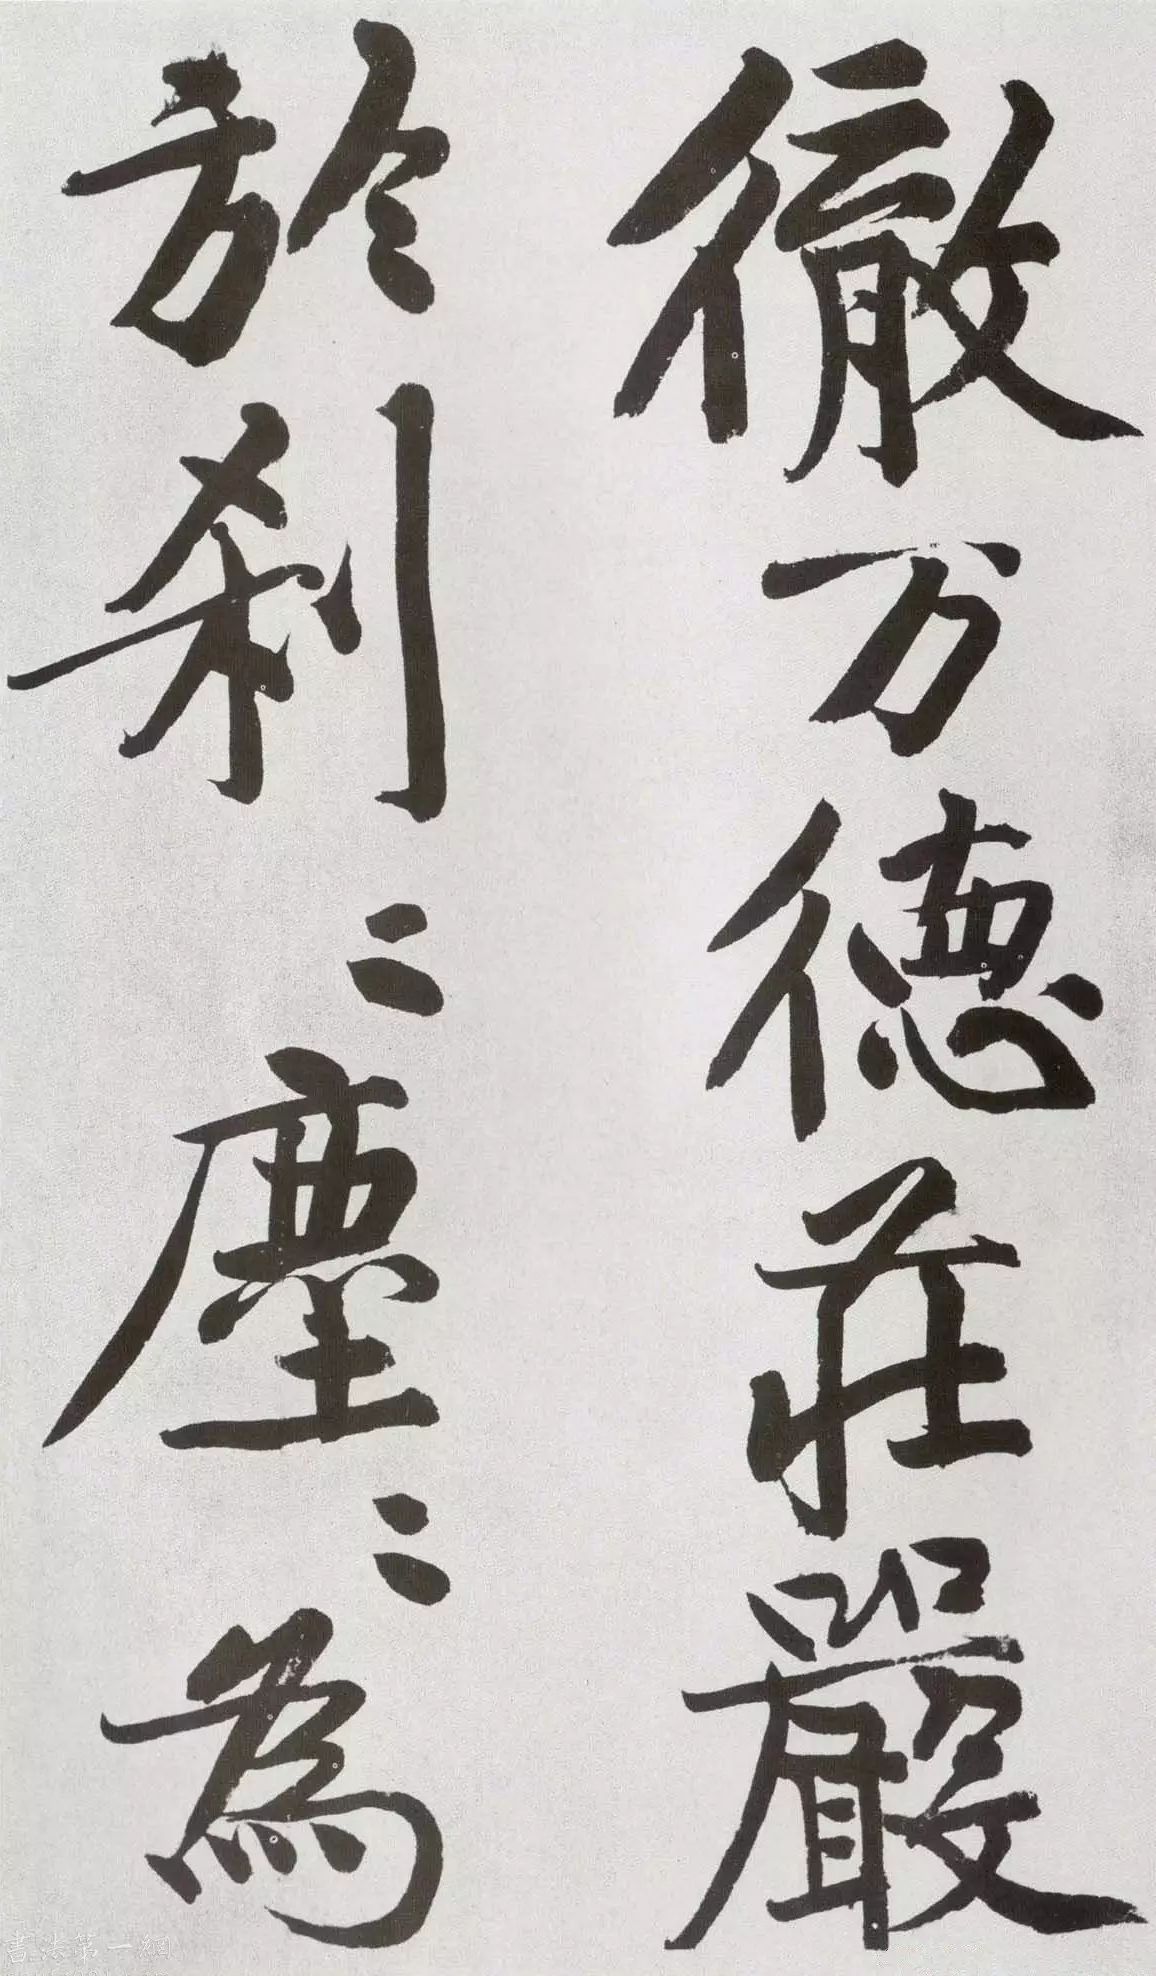 徹万德莊嚴
於刹〻塵〻為
書法第一網